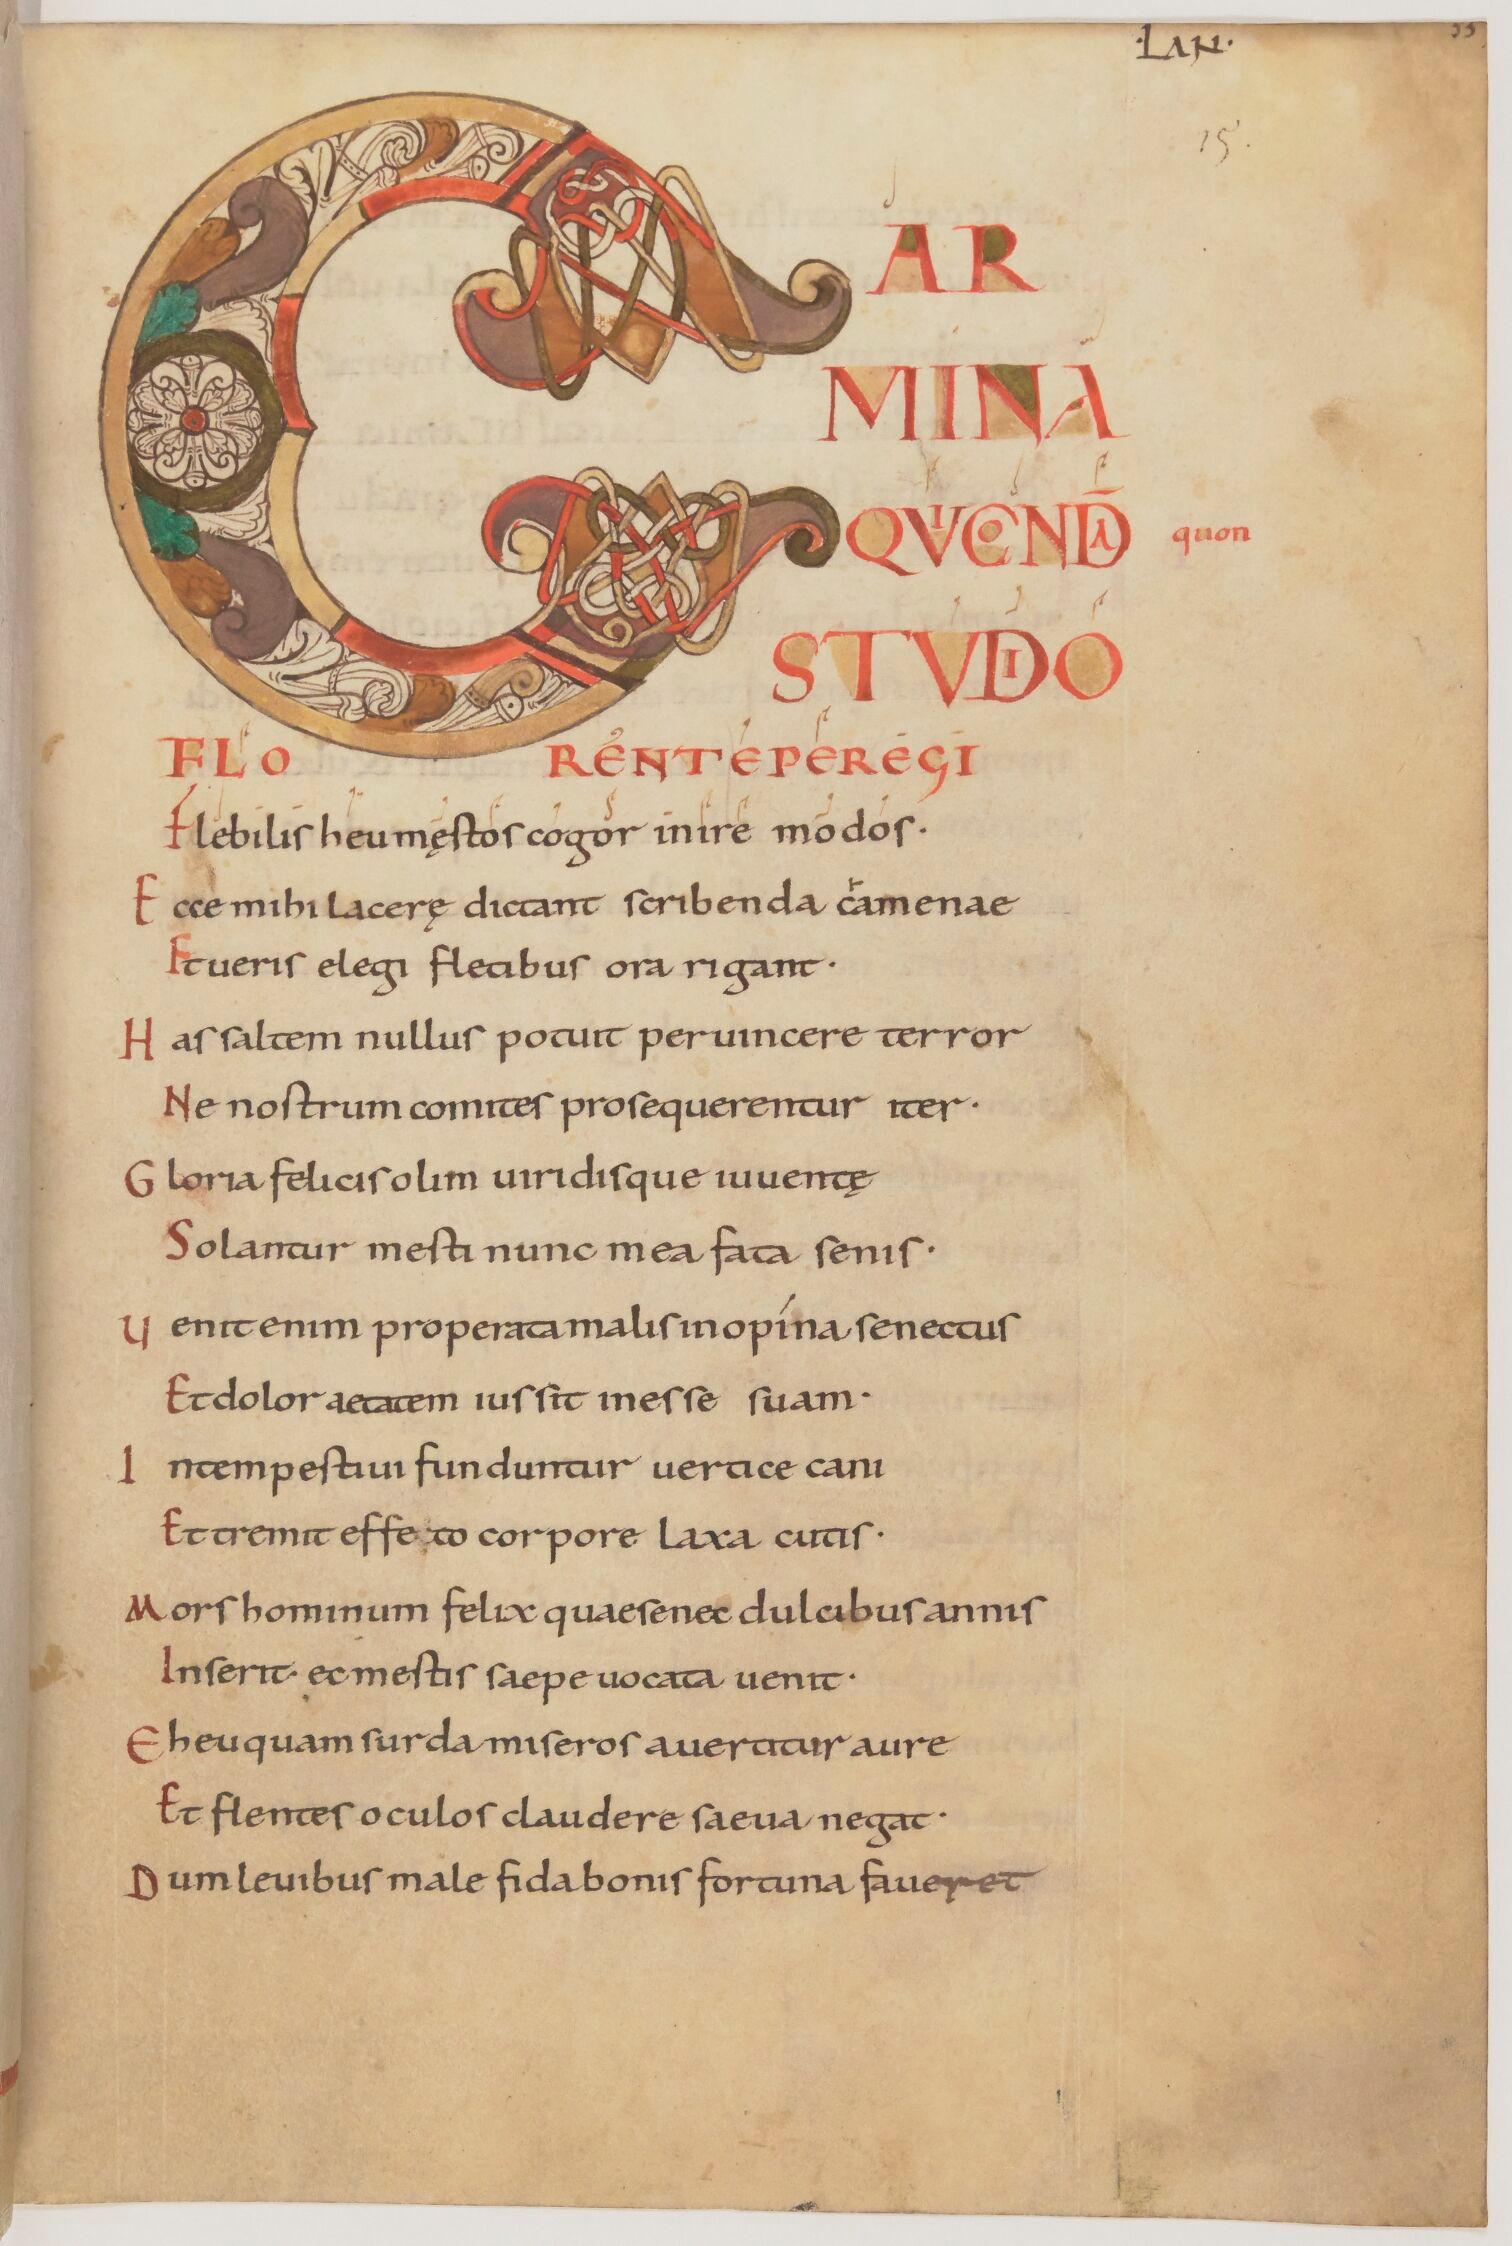 ·LAN·
33
15.
CAR
MINA
QVICONDĀ quon
STVDIO
FLORENTE PEREGI
Flebilis heu męstos cogor inire modos·
Ecce mihi lacerę dictant scribenda camenae
Et ueris elegi fletibus ora rigant·
Has saltem nullus potuit peruincere terror
Ne nostrum comites prosequerentur iter·
Gloria felicis olim uiridisque iuuentę
Solantur mesti nunc mea fata senis·
Uenit enim properata malis inopína senectus
Et dolor aetatem iussit inesse suam·
Intempestiui funduntur uertice cani
Et tremit effeto corpore laxa cutis·
Mors hominum felix quae se nec dulcibus annis
Inserit· ec mestis saepe uocata uenit·
Eheu quam surda miseros auertitur aure
Et flentes oculos claudere saeua negat·
Dum leuibus male fida bonis fortuna faueret